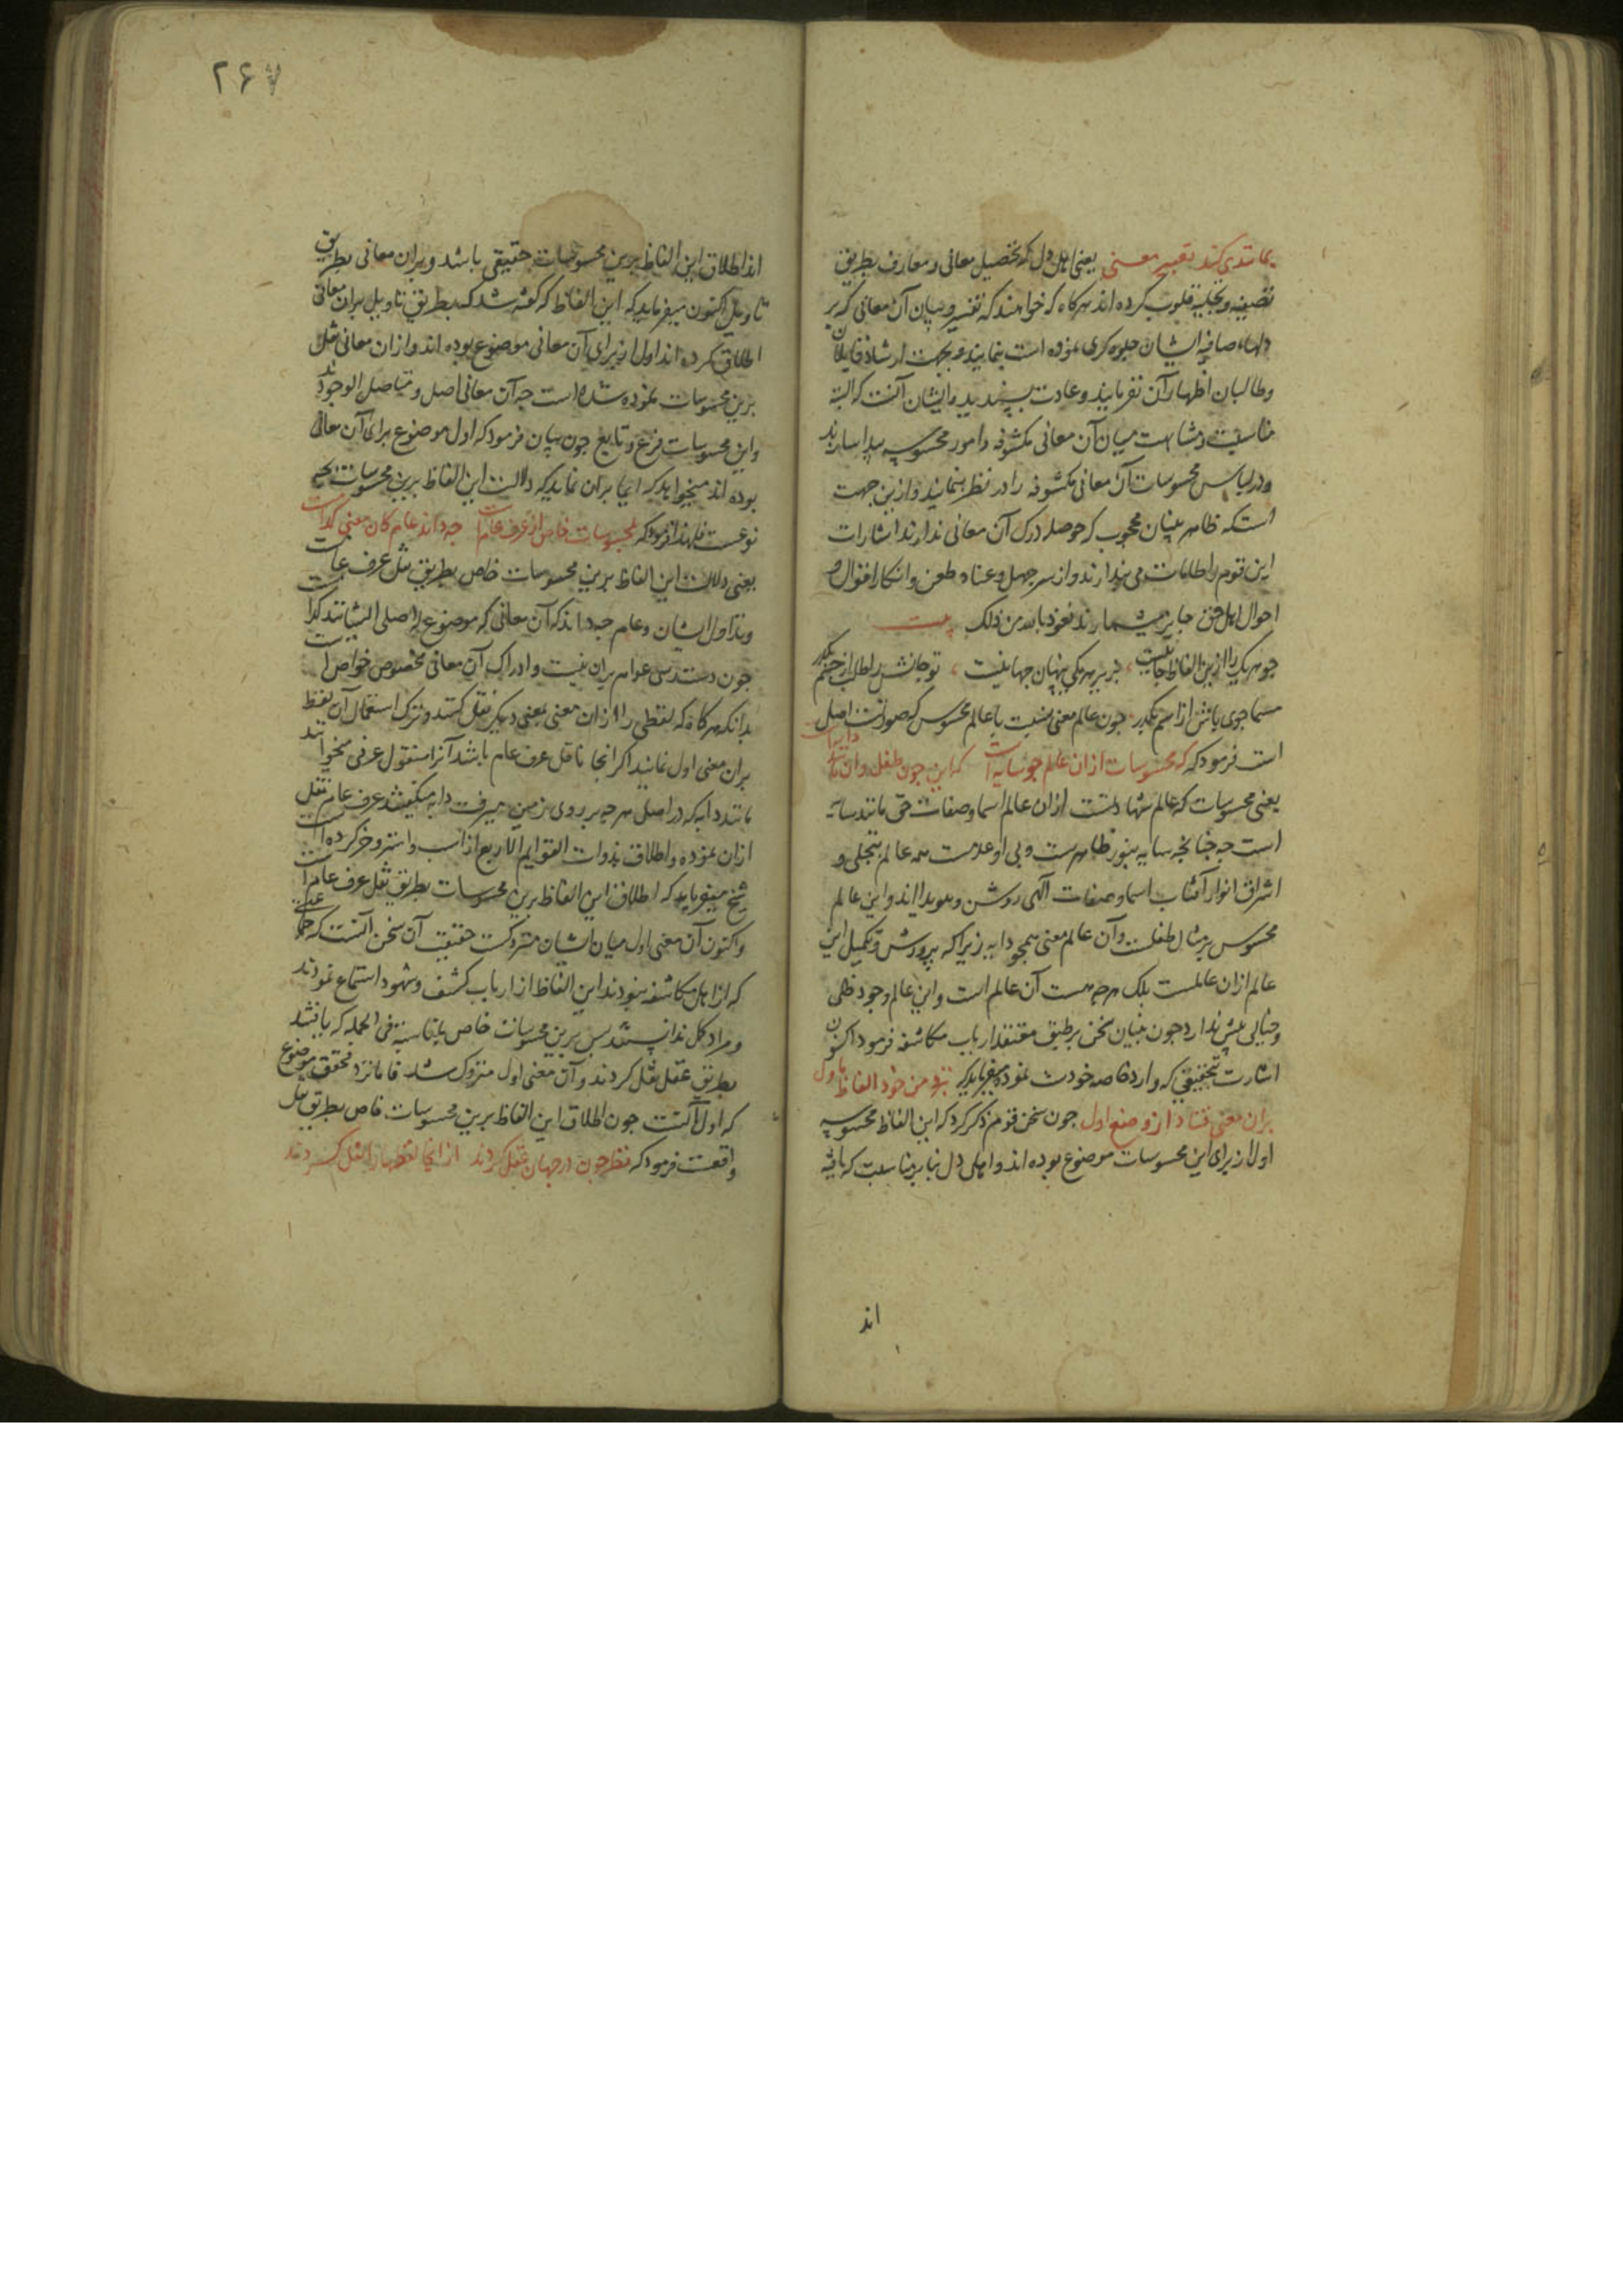 بمانندی کند تعبیر معنی یعنی اهل دل که تحصیل معانی و معارف بطریق
تصفیه و تجلیهٔ قلوب کرده اند هرکاه که خواهند که تفسیر و بیان آن معانی که بر
دلهاء صافیه ایشان جلوه کری نموده است بنمایند و بجهت ارشاد قابلان
و طالبان اظهار آن بفرمایند و عادت پسندیده ایشان آنست که البته
مناسبت و مشابهت میان آن معانی مکشوفه و امور محسوسه پیدا سازند
و در لباس محسوسات آن معانی مکشوفه را در نظر بنمایند و ازین جهت
است که ظاهر بینان محجوب که حوصله درک آن معانی ندارند اشارات
این قوم را طامات می پندارند و از سر جهل و عناد طعن و انکار اقوال و
احوال اهل حق جایز میشمارند نعوذ بالله من ذلک بیت
چو هر یک را ازین الفاظ جانیست بزیر هر یکی پنهان جهانیست تو جانش را طلب از جسم بکذر
مسما جوی باش از اسم بکذر چون عالم معنی نسبت با عالم محسوس که صورتست اصل
است فرمود که که محسوسات ازان عالم چو سایه است که این چون طفل و ان مانند دایه است
یعنی محسوسات که عالم شهادتست ازان عالم اسما و صفات حق مانند سایه
است چه چنانچه سایه بنور ظاهرست و بی او عدمست همه عالم بتجلی و
اشراق انوار آفتاب اسما و صفات الهی روشن و هویدا اند و این عالم
محسوس بر مثال طفلست و آن عالم معنی همچو دایه زیرا که پرورش و تکمیل این
عالم ازان عالمست بلک هرچه هست آن عالم است و این عالم وجود ظلی
و خیالی بیش ندارد چون بنیان سخن بر طبق معتقد ارباب مکاشفه فرمود اکنون
اشارت تحقیقی که وارد خاصه خودست نموده میفرماید که بنزد من خود الفاظ ماول
بران معنی فتاد از وضع اول چون سخن قوم ذکر کرد که این الفاظ محسوسه
اولا از برای این محسوسات موضوع بوده اند و اهل دل بنا بر مناسبت که یافته
اند
۲۶۷
اند اطلاق این الفاظ برین محسوسات حقیقی باشد و بران معانی بطریق
تاویل اکنون میفرماید که این الفاظ که کفته شد که بطریق تاویل بران معانی
اطلاق کرده اند اول از برای آن معانی موضوع بوده اند و ازان معانی نقل
برین محسوسات نموده شده است چه آن معانی اصل و متاصل الوجودند
و این محسوسات فرع و تابع چون بیان فرمود که اول موضوع برای آن معانی
بوده اند میخواهد که ایما بران نماید که دلالت این الفاظ برین محسوسات بچه
نوعست فلهذا فرمود که بمحسوسات خاص از عرف عام است چه داند عام کان معنی کدام است
یعنی دلالت این الفاظ برین محسوسات خاص بطریق نقل عرف عام است
و تداول ایشان و عام چه داند که آن معانی که موضوع له اصلی اینانند کدام است
چون دسترس عوام بران نیست و ادراک آن معانی مخصوص خواص است
بدانکه هرکاه که لفظی را ازان معنی بمعنی دیکر نقل کنند و ترک استعمال آن لفظ
بران معنی اول نمایند اکر انجا ناقل عرف عام باشد آنرا منقول عرفی میخوانند
مانند دابه که در اصل هرچه بر روی زمین میرفت دابه میکفتند عرف عام نقل
ازان نموده و اطلاق بذوات القوایم الاربع از اسب و استر و خر کرده است
شیخ میفرماید که اطلاق این الفاظ برین محسوسات بطریق نقل عرف عام است
و اکنون آن معنی اول میان ایشان متروکست حقیقت آن سخن آنست که جماعتی
که از اهل مکاشفه نبودند این الفاظ از ارباب کشف و شهود استماع نمودند
و مراد کل ندانستند پس برین محسوسات خاص بمناسبة فی الجمله که یافتند
بطریق عقل نقل کردند و آن معنی اول متروک شد فاما نزد محقق موضوع
که اول آنست چون اطلاق این الفاظ برین محسوسات خاص بطریق نقل
واقعست فرمود که نظر چون در جهان عقل کردند از انجا لفظها را نقل کردند